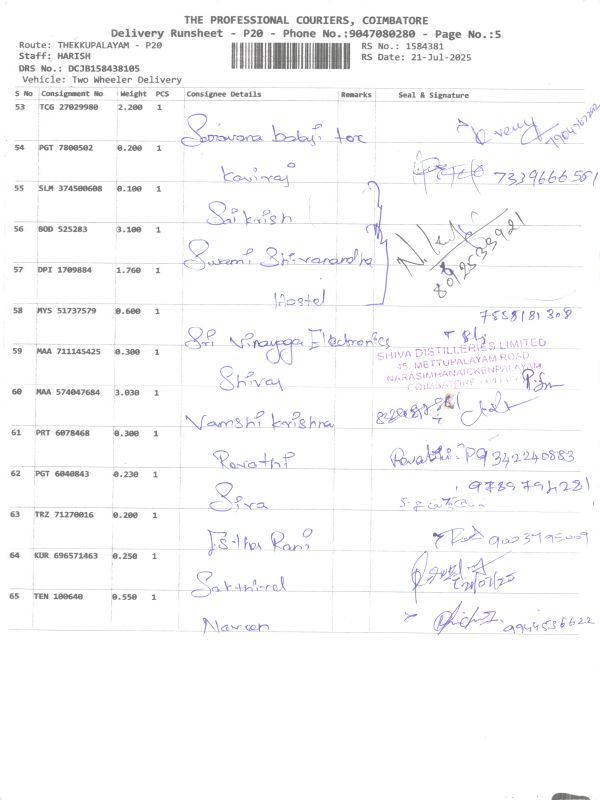 THE PROFESSIONAL COURIERS, COIMBATORE
Delivery Runsheet - P20 - Phone No.:9047080280 - Page No.:5
Route: THEKKUPALAYAM - P20 RS No.: 1584381
Staff: HARISH RS Date: 21-Jul-2025
DRS No.: DCJB158438105
Vehicle: Two Wheeler Delivery
S No Consignment No Weight PCS Consignee Details Remarks Seal & Signature
53 TCG 27029980 2.200 1
Saravana balaji tex
54 PGT 7800502 0.200 1
Kaviraj 7339666581
55 SLM 374500608 0.100 1
Saikrish
56 BOD 525283 3.100 1
Swami Shivanandha 8012533921
57 DPI 1709884 1.760 1
Hostel
58 MYS 51737579 0.600 1 7558181308
Sri Vinayaga Electronics
59 MAA 711145425 0.300 1 SHIVA DISTILLERIES LIMITED
45, METTUPALAYAM ROAD
NARASIMHANAICKENPALAYAM
Shivaj COIMBATORE
60 MAA 574047684 3.030 1
Vamshi krishna
61 PRT 6078468 0.300 1
Revathi Revathi. P 9342240883
62 PGT 6040843 0.230 1 9789794281
Siva
63 TRZ 71270016 0.200 1
Esther Rani 9003795009
64 KUR 696571463 0.250 1
Sakthivel
65 TEN 100640 0.550 1
Naveen 9944536622